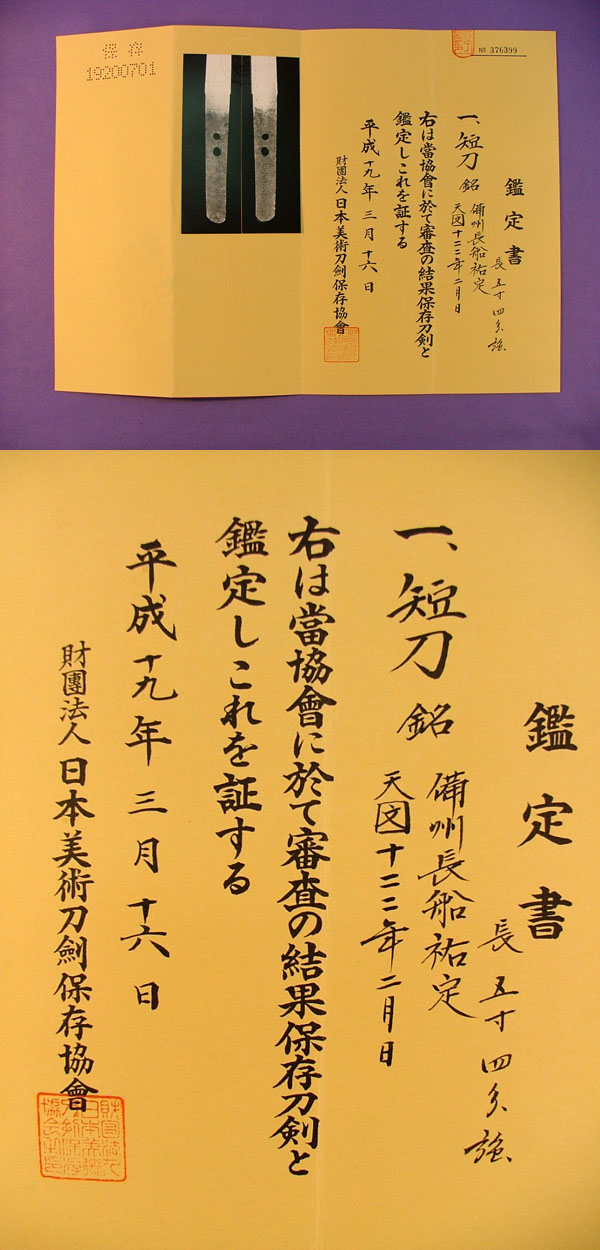 保存
19200701
№ 376399
鑑定書
長 五寸四分強
一、短刀 銘 備州長船祐定
天文十二二年二月日
右は當協會に於て審査の結果保存刀剣と
鑑定しこれを証する
平成十九年三月十六日
財團法人日本美術刀劍保存協會
鑑定書
長 五寸四分強
一、短刀 銘 備州長船祐定
天文十二二年二月日
右は當協會に於て審査の結果保存刀剣と
鑑定しこれを証する
平成十九年三月十六日
財團法人日本美術刀劍保存協會